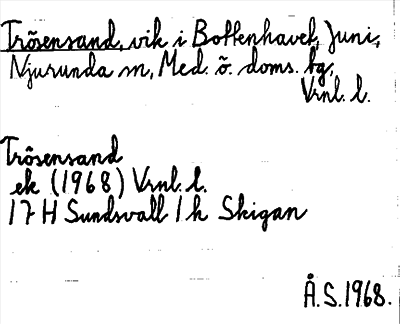 Trösensand, vik i Bottenhavet, Juni,
Njurunda sn, Med. ö. doms. bg,
Vrnl. l.
Trösensand
ek (1968) Vrnl. l.
17 H Sundsvall 1 h Skigan
Å.S. 1968.